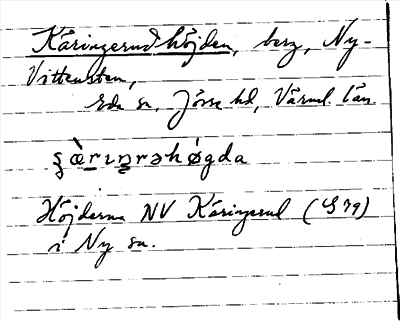 Käringerudhöjden, berg, Ny-
Vittensten,
Eda sn, Jösse hd, Värml. län.
ʂæ̀rɪŋrəhǿgda
Höjderna NV Käringerud (S 79)
i Ny sn.